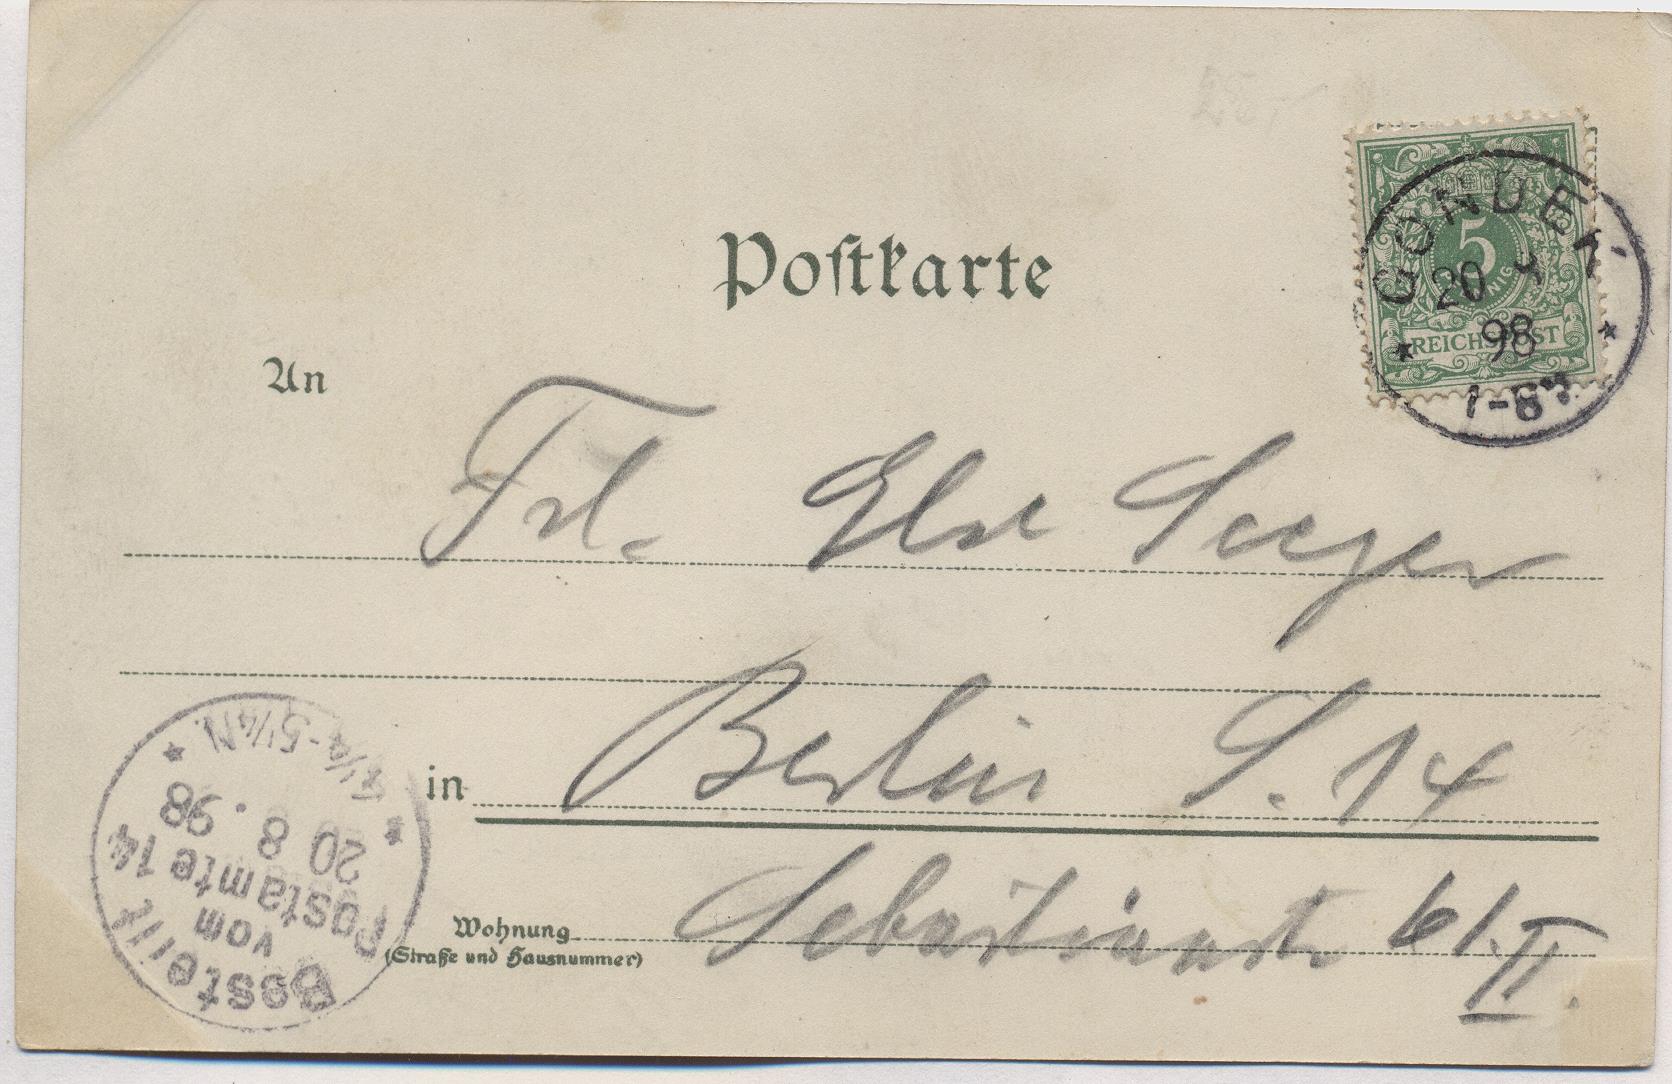 25,-
Postkarte
5
REICHSPOST
20 8
98
An
Frl. Else Seeger
in Berlin S. 14
Wohnung Sebastianstr. 61. II.
(Straße und Hausnummer)
Bestellt
vom
Postamte 14
20 8. 98
4¼-5¼N.